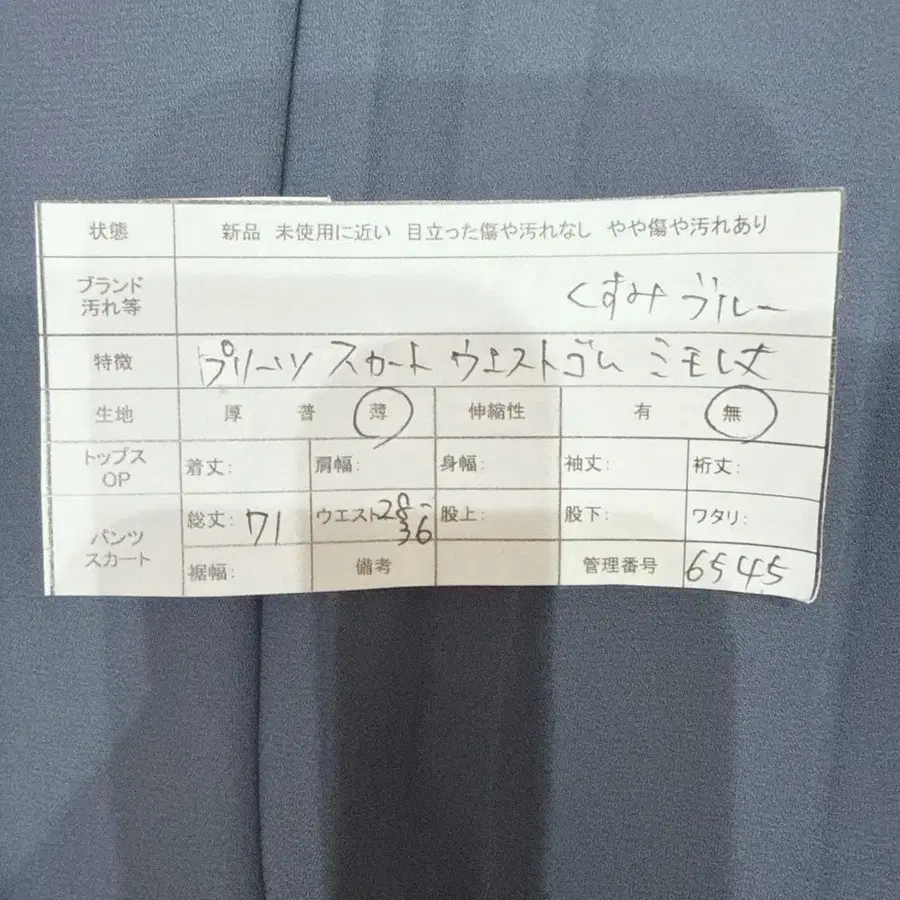 状態 新品 未使用に近い 目立った傷や汚れなし やや傷や汚れあり
ブランド
汚れ等 くすみ ブルー
特徴 プリーツ スカート ウエストゴム ミモレ丈
生地 厚 普 薄 伸縮性 有 無
トップス
OP 着丈: 肩幅: 身幅: 袖丈: 裄丈:
パンツ
スカート 総丈: 71 ウエスト28-
36 股上: 股下: ワタリ:
裾幅: 備考 管理番号 6545